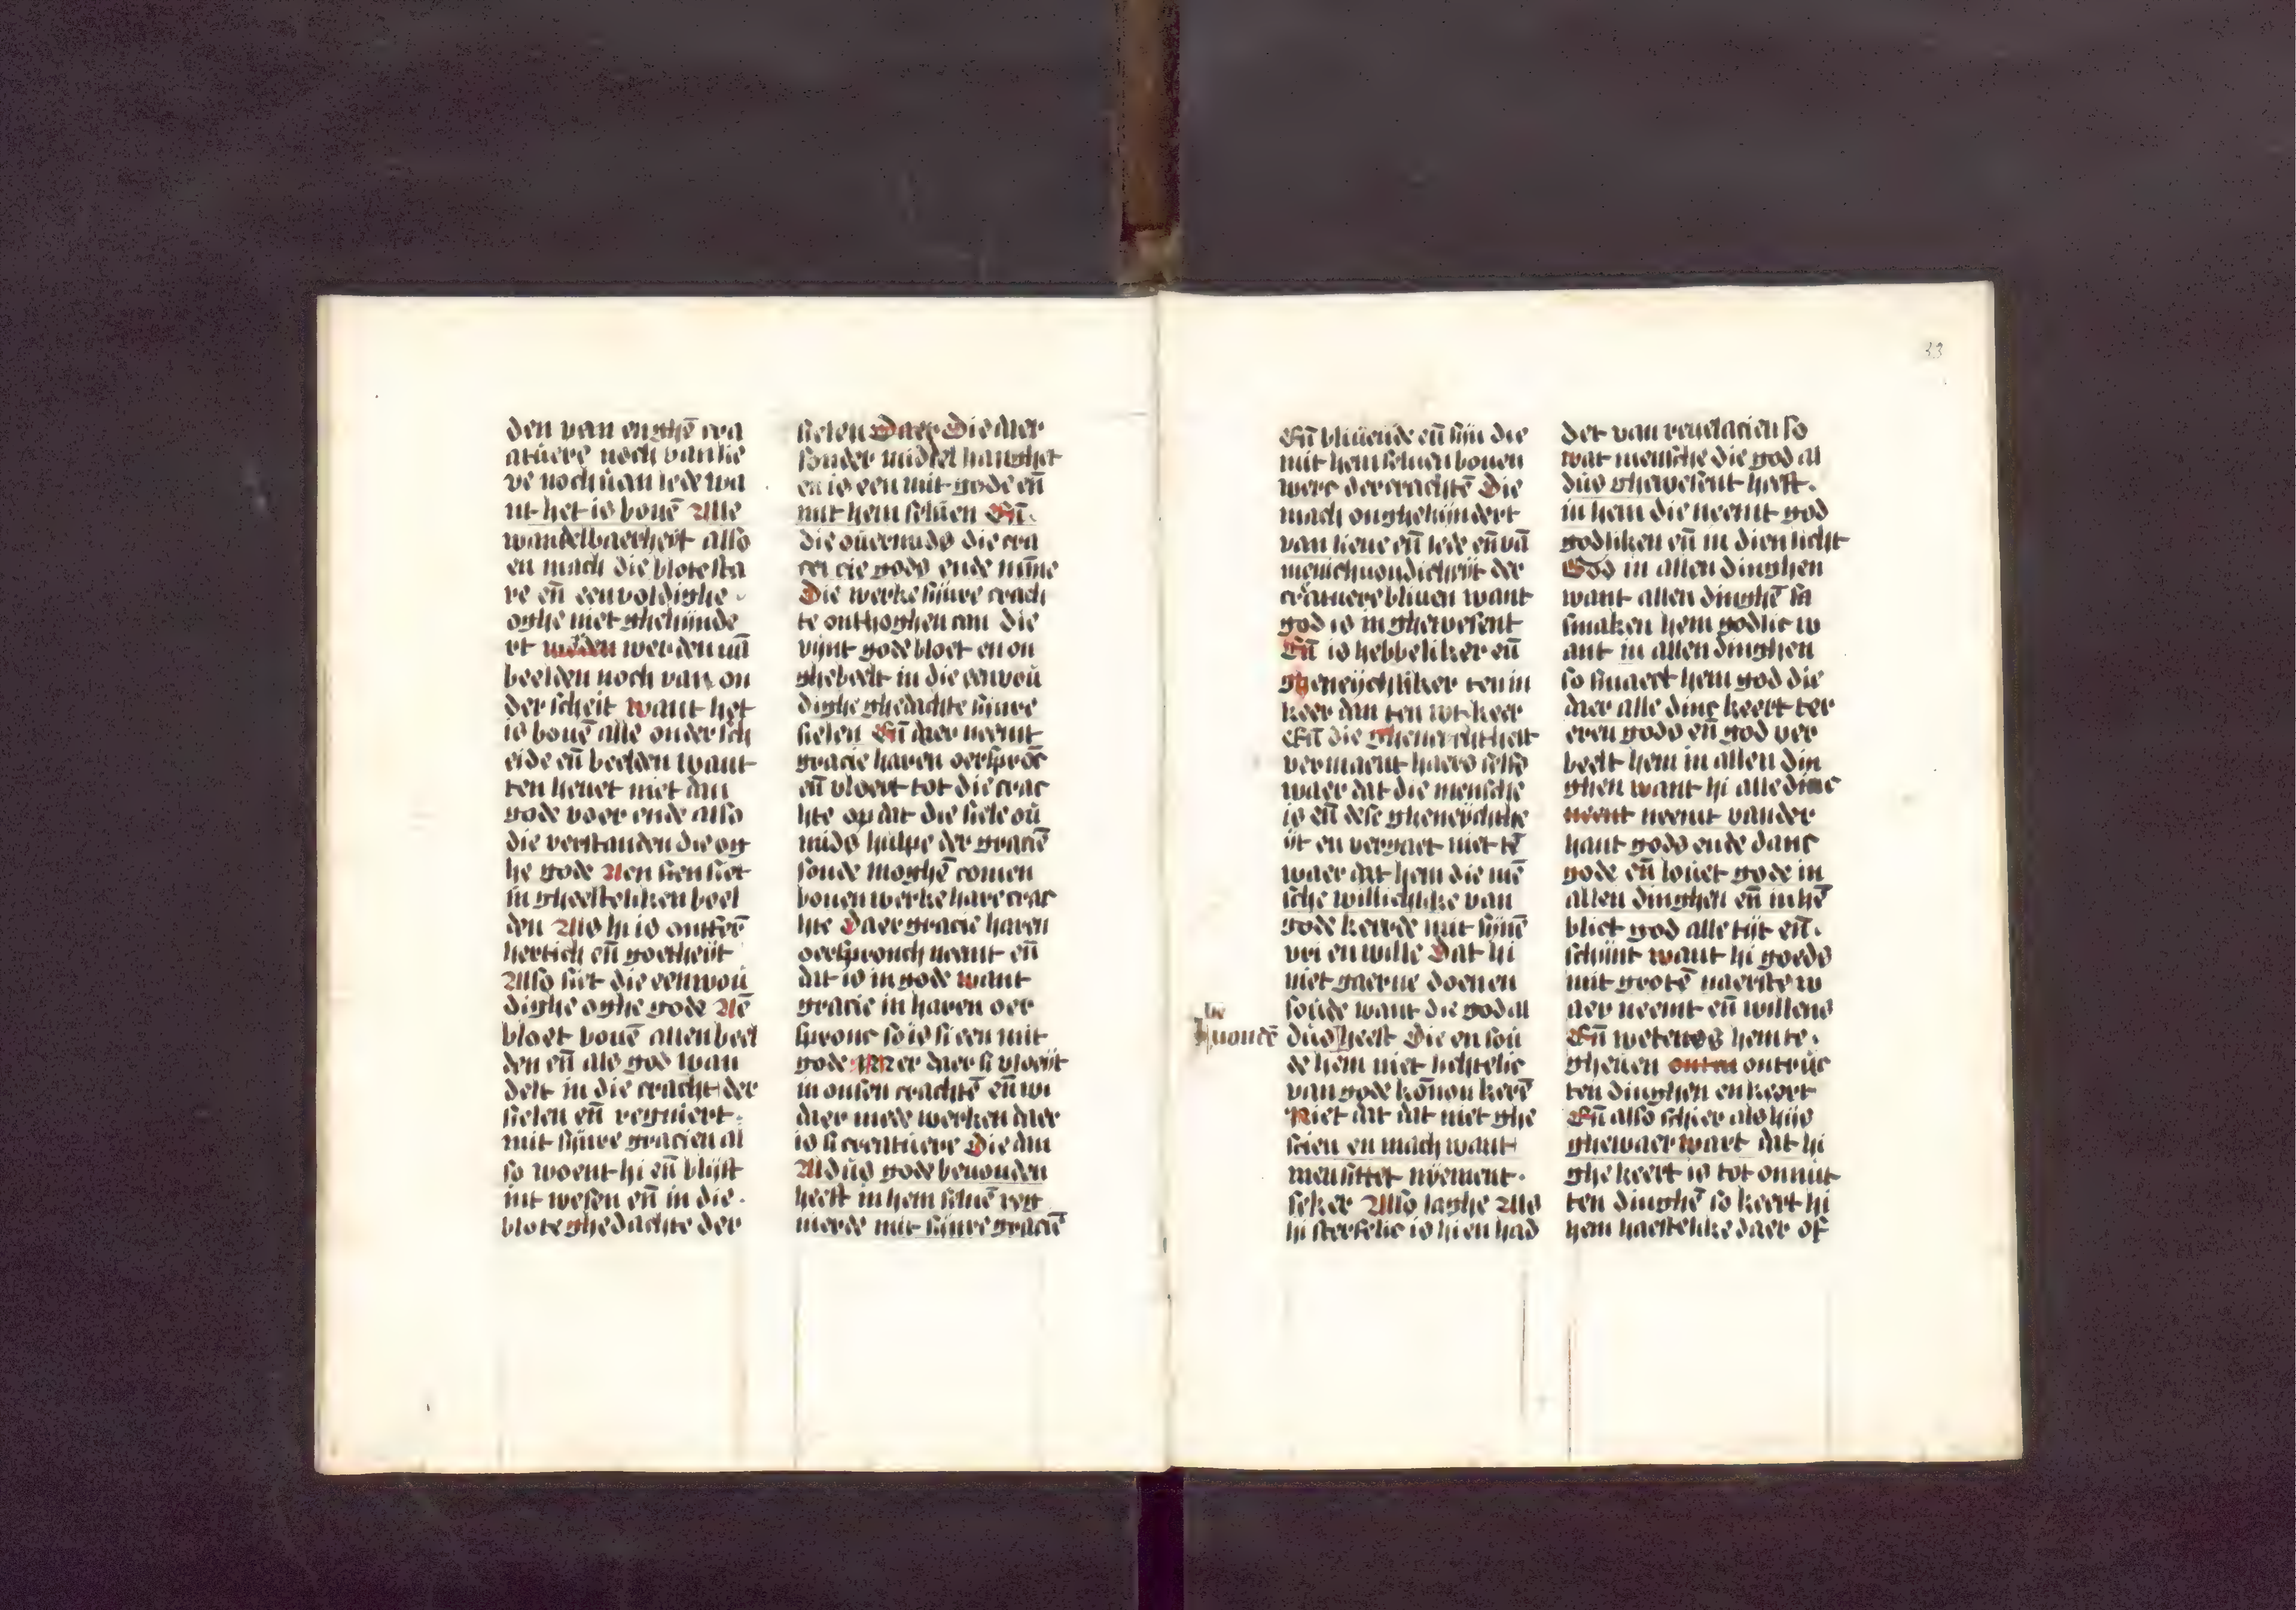 den van enghē crea
atuere noch van lie
ve noch uan lede wa
nt het is bouē Alle
wandelbaerheit also
en mach die blote sta
re en̄ eenvoldighe
oghe niet ghehinde
rt werden uā
beelden noch van on
derscheit want het
is bouē alle ondersch
eide en̄ beelden want
ten heuet niet dan
gode voer ende also
die verstanden die og
he gode Aen sien siet
in gheesteliken beel
den Als hi is ontfer
hertich en̄ goetheyt
Also siet die eenwou
dighe oghe gode Aē
bloet bouē allen beel
den en̄ als god wan
delt in die cracht der
sielen en̄ regniert
mit sijnre gracien al
so woent hi en̄ blijft
int wesen en̄ in die
blote ghedachte der
sielen Daer Die daer
sonder middel hanghet
en is een mit gode en̄
mit hem seluen En̄
die ouermids die cra
cie gods ende mīne
Die werke sijnre crach
te onthoghen can die
vijnt gode bloet en on
ghebeelt in die eenvou
dighe ghedachte sijnre
sielen En̄ daer neemt
gracie haren oersprōc
en̄ vloeyt tot die crac
hte op dat die siele ou
mids hulpe der graciē
soude moghē comen
bouen werke hare crac
hte Daer gracie haren
oerspronch neemt en̄
dat is in gode want
gracie in haren oer
spronc so is si een mit
gode Mer daer si vloeyt
in onsen crachtē en̄ wi
daer mede werken daer
is si creatuere Die dan
Aldus gode beuonden
heeft in hem seluē reg
nierde mit sijnre graciē
33
En̄ bliuende en̄ sijn die
mit hem seluen bouen
werc der crachtē Die
mach onghehijndert
van lieue en̄ lede en̄ vā
menichuondicheyt der
creatuere bliuen want
god is in ghewesent
En̄ is hebbeliker en̄
gheneychliker ten in
keer dan ten wt keer
En̄ die gheneycht heit
vermaent haers selfs
waer dat die mensche
is en̄ dese gheneychthe
ijt en vergaet niet tē
waer dat hem die mē
sche willichlike van
gode keerde mit sijnē
vrien wille Dat hi
niet gaerne doen en
soude want die god al
be
uondē
dus heeft Die en sou
de hem niet lichtelic
van gode kōnen kerē
Niet dat dat niet ghe
scien en mach want
men sittet nyement
seker Also langhe Als
hi sterfelic is hi en had
der van reuelacien so
wat mensche die god al
dus ghewesent heeft
in hem die neemt god
godliken en̄ in dien licht
God in allen dinghen
want allen dinghē sa
smaken hem godlic w
ant in allen dinghen
so smaect hem god die
daer alle dinc keert ter
eren gods en̄ god ver
beelt hem in allen din
ghen want hi alle dinc
neemt neemt vander
hant gods ende danc
gode en̄ louet gode in
allen dinghen en̄ in hē
blict god alle tijt en̄
schijnt want hi goeds
mit grotē naerste w
aer neemt en̄ willens
En̄ wetens hem te
gheuen ontnuc
ten dinghen en keert
En̄ also schier als hijs
ghewaer wart dat hi
ghekeert is tot onnut
ten dinghē so keert hi
hem haestelike daer of